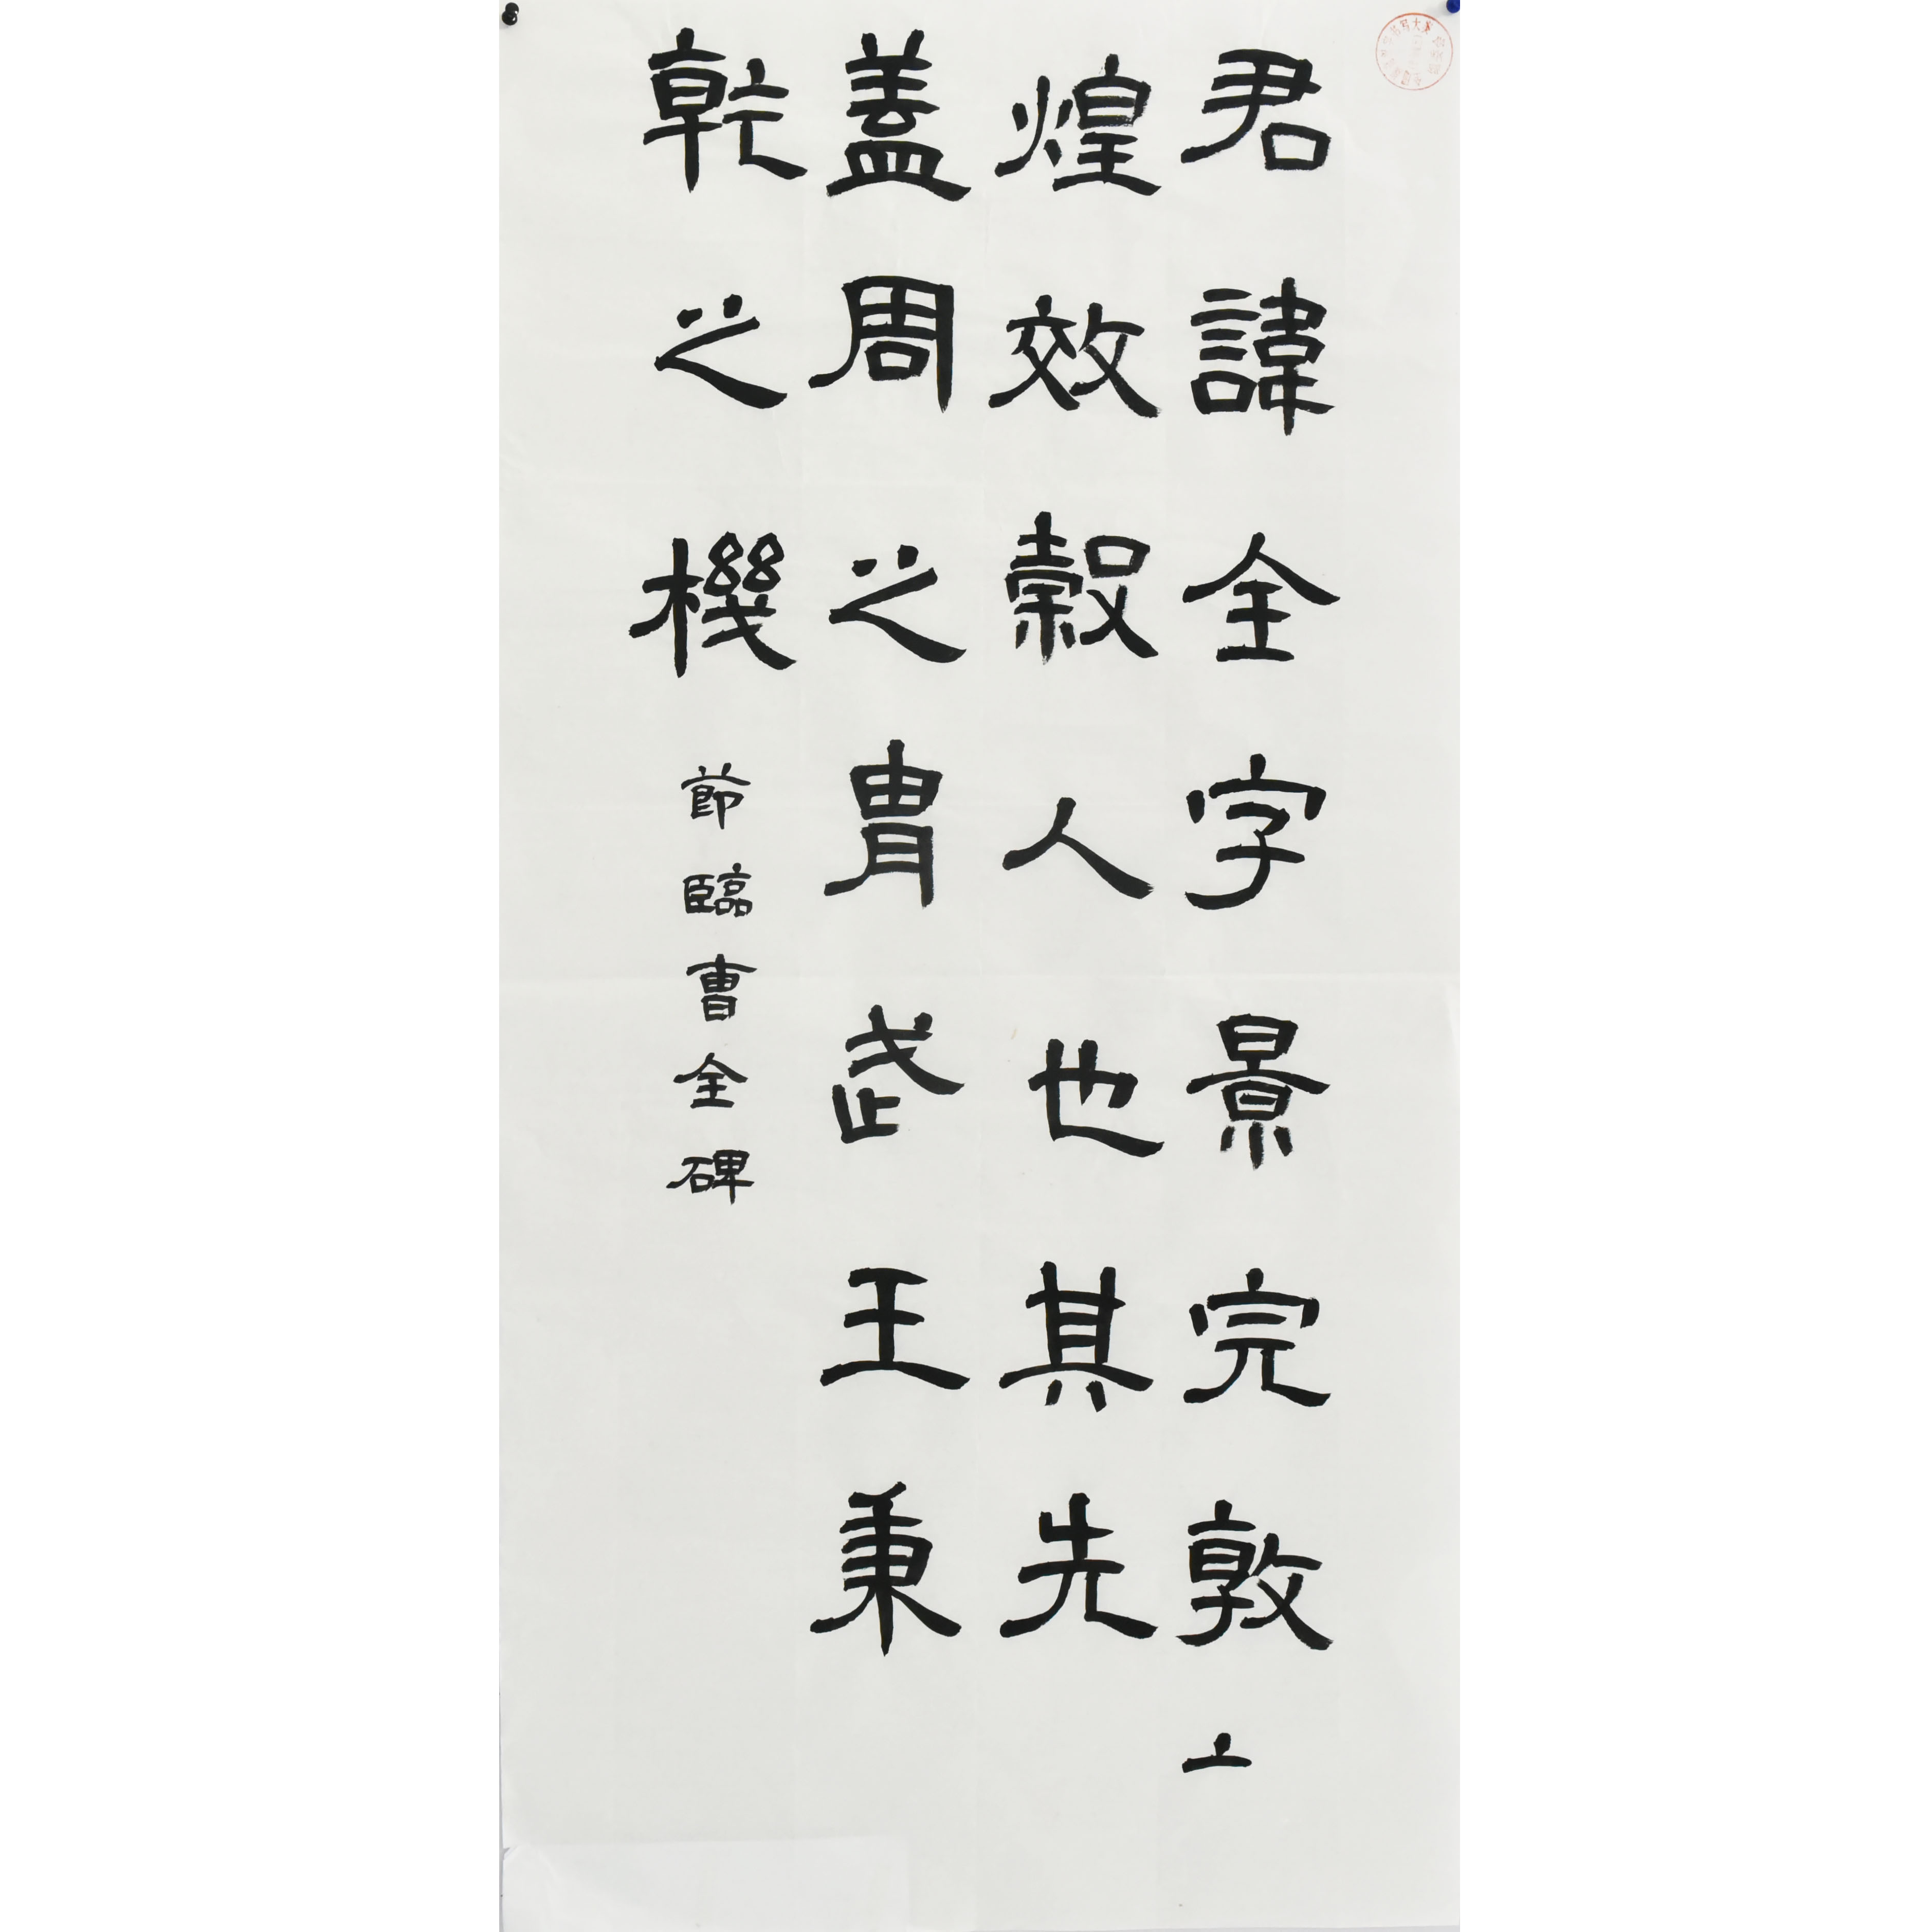 君諱全字景完敦亠
煌效穀人也其先
蓋周之胄武王秉
乾之機
節臨曹全碑